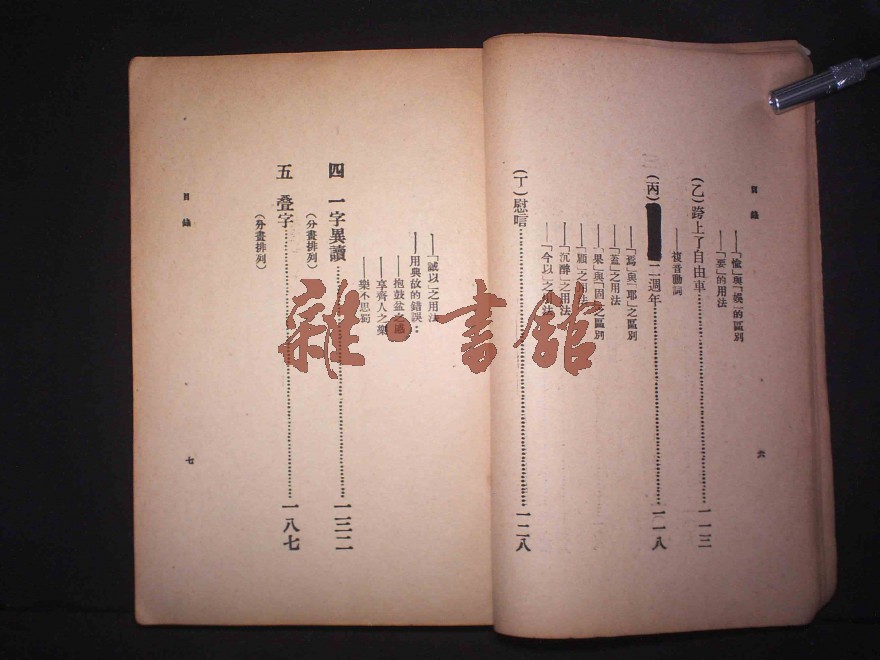 目錄
——「愴」與「摤」的區別
——「要」的用法
(乙)跨上了自由車……一一三
——複音動詞
(丙)二週年……一一八
——「焉」與「耶」之區別
——「蓋」之用法
——「果」與「固」之區別
——「顧」之用法
——「沉醉」之用法
——「今以」之用法
(丁)慰唁……一二八
六
目錄
——「誠以」之用法
——用典故的錯誤:
——抱鼓盆之慼
——享齊人之樂
——樂不思蜀
四 一字異讀……一三二
(分畫排列)
五 疊字……一八七
(分畫排列)
七
雜·書館